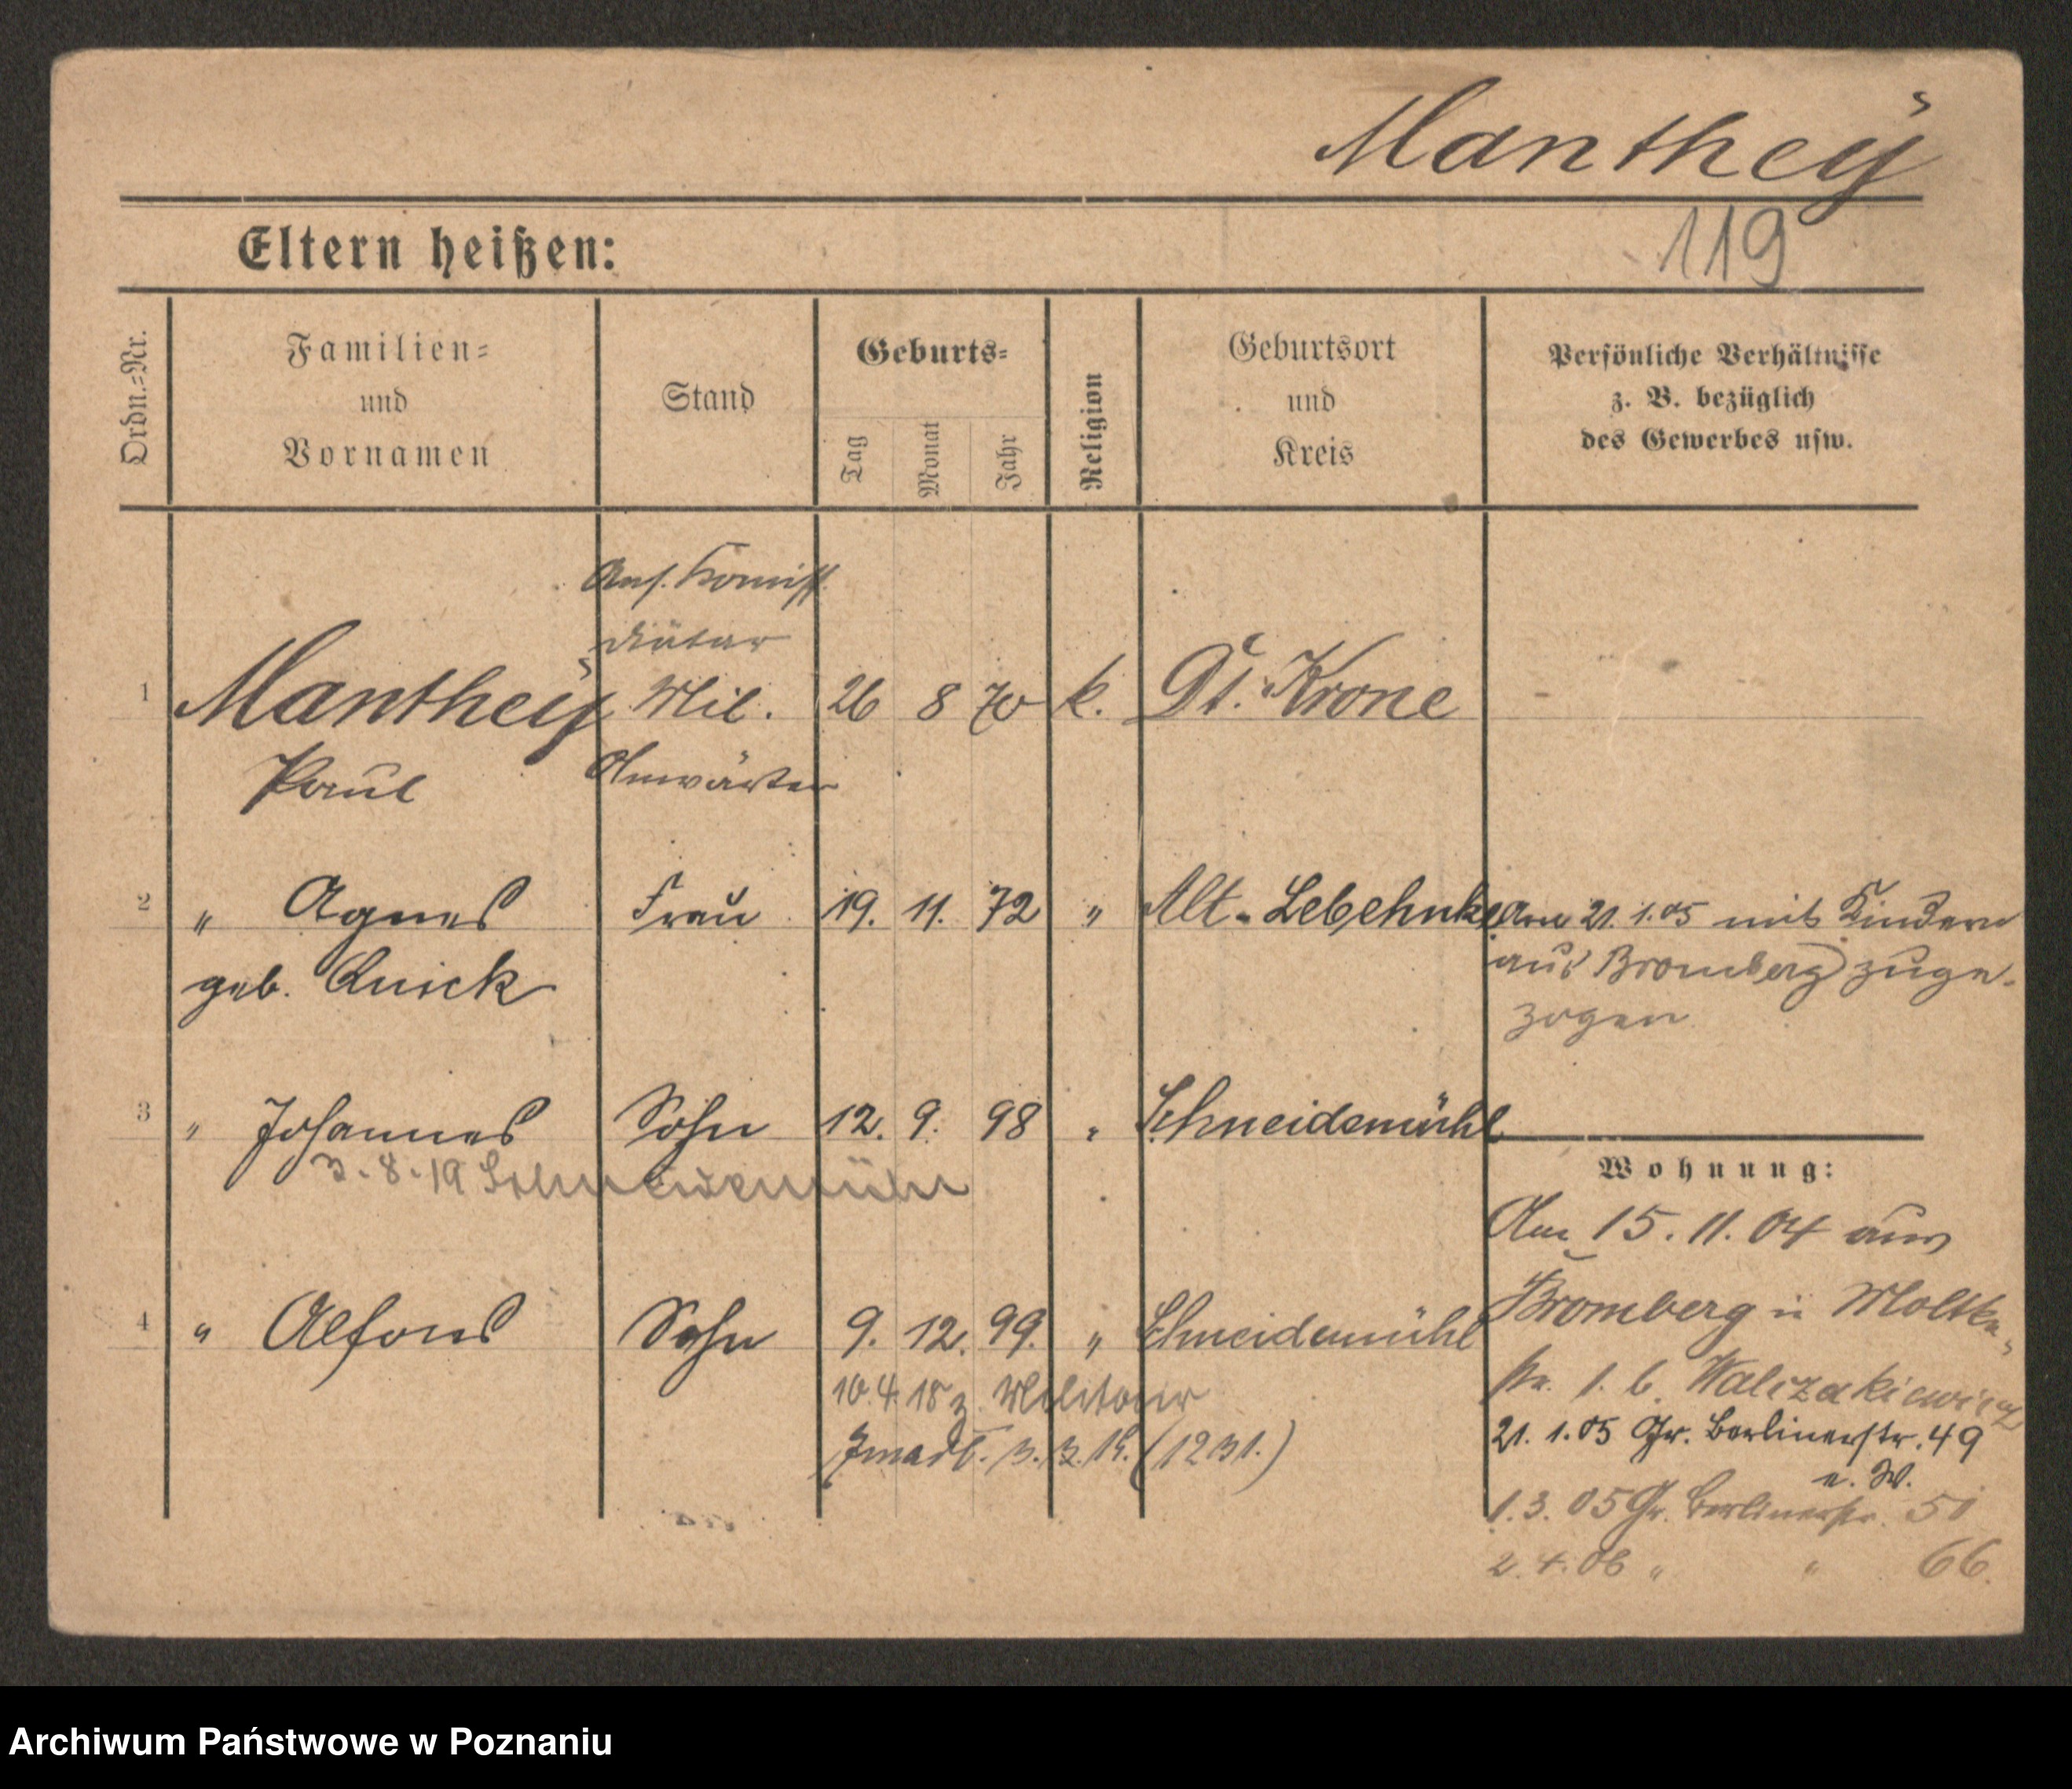 Manthey
119
Eltern heißen:
Ordn.=Nr.
Familien=
und
Vornamen
Stand
Geburts=
Tag
Monat
Jahr
Religion
Geburtsort
und
Kreis
Persönliche Verhältnisse
z. B. bezüglich
des Gewerbes usw.
Ans. Komiss.
Diätar
1 Manthey Mil. 26 8 70 k. Dt. Krone
Paul Anwärter
2 " Agnes Frau 19. 11. 72 " Alt-Lebehnke Am 21.1.05 mit Kindern
geb. Quick aus Bromberg zuge-
zogen
3 " Johannes Sohn 12. 9. 98 " Schneidemühl
3.8.19 Schneidemühl
Wohnung:
Am 15.11.04 aus
4 " Alfons Sohn 9. 12. 99. " Schneidemühl
Bromberg n Moltke-
10.4.18 z. Militär
str. 1. b. Walczakiewicz
21.1.05 Gr. Berlinerstr. 49
(1231.)
e. W.
1.3.05 Gr. Berlinerstr. 50
2.4.06 " " 66.
Archiwum Państwowe w Poznaniu